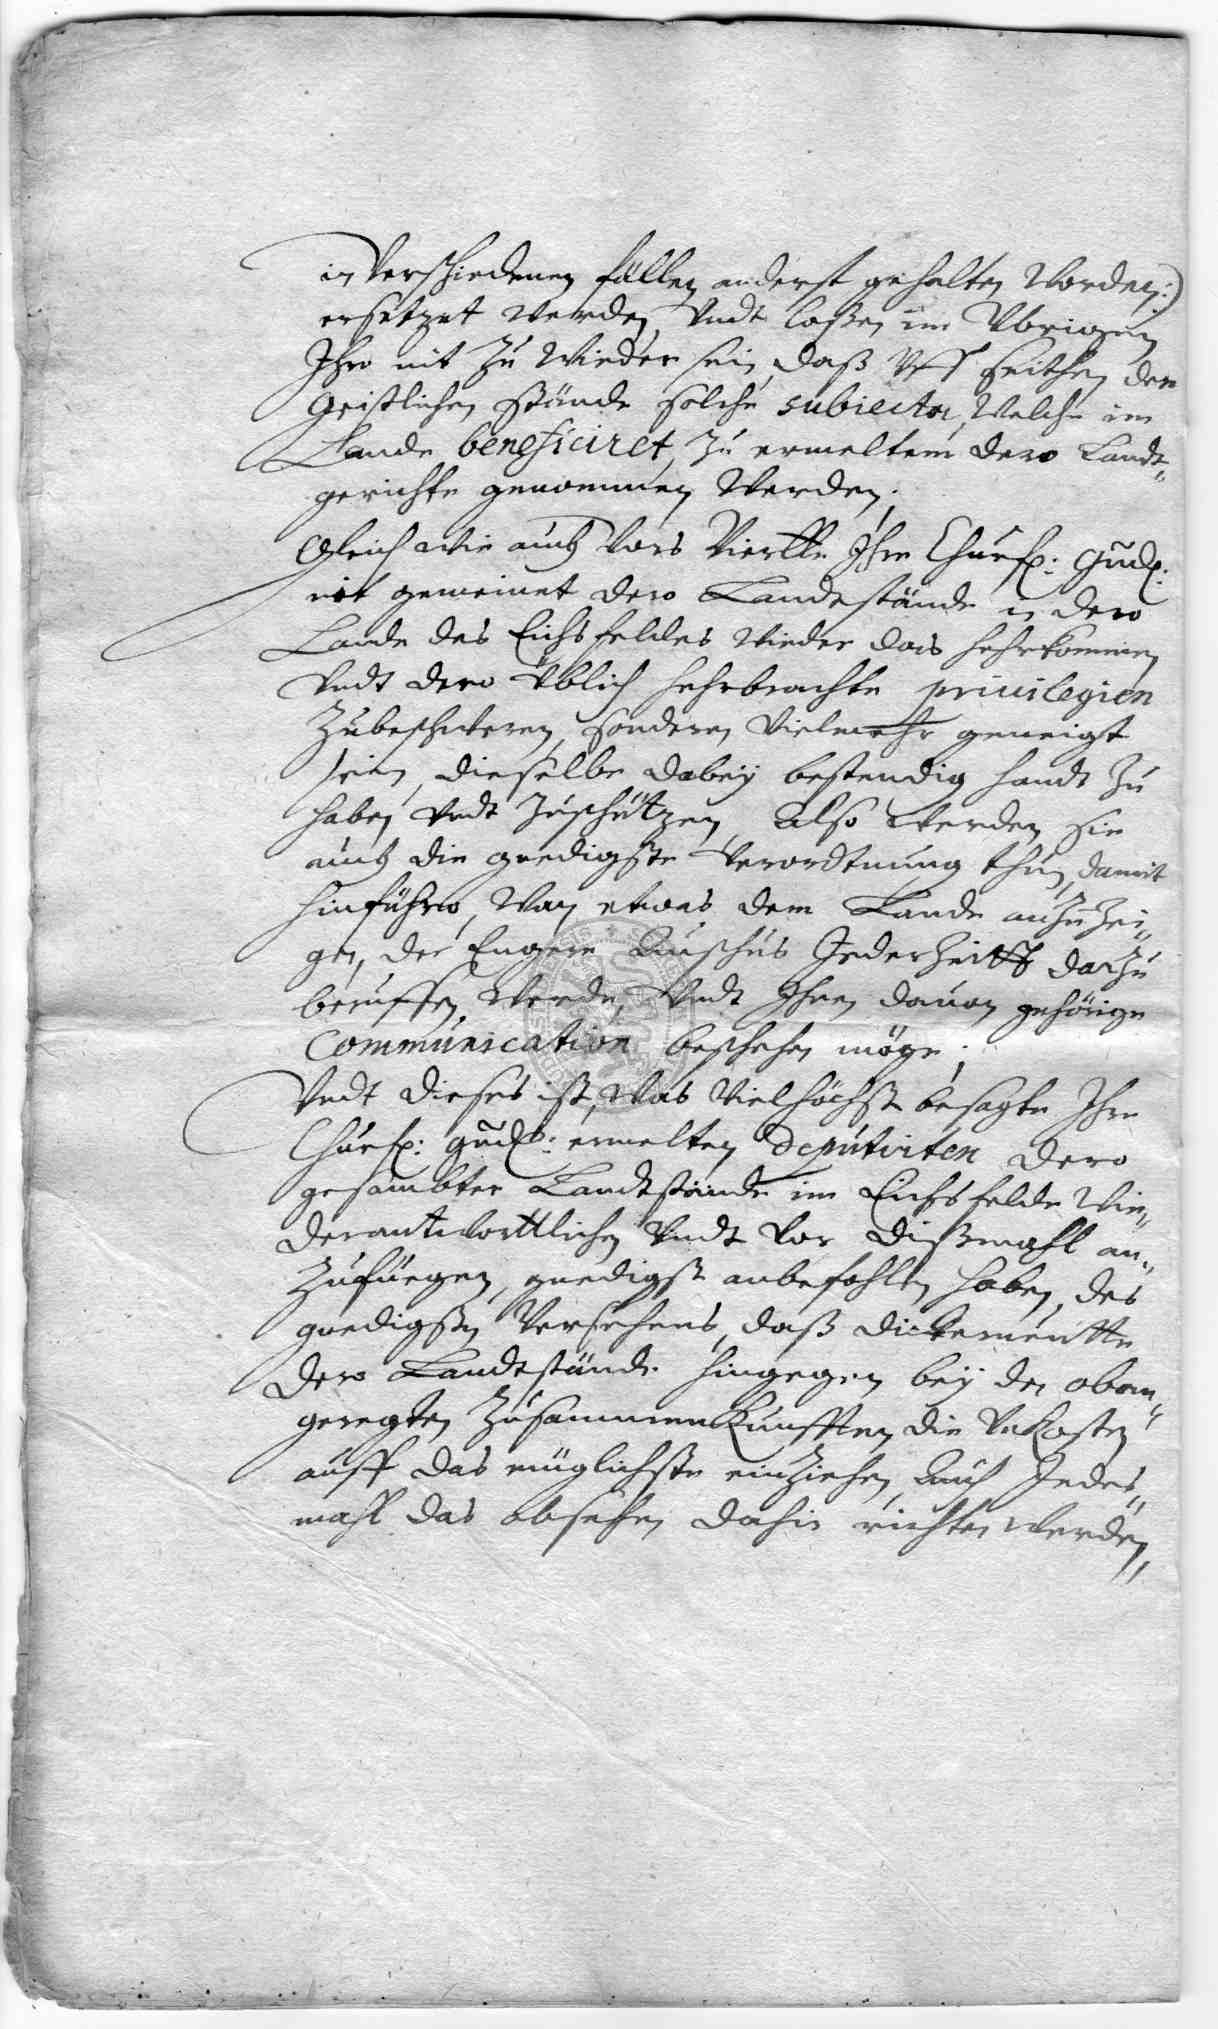 in Verschiedenen fällen anderst gehalten Worden:)
ersetzet werden, Vndt laßen im Vbrigen
Ihro nit zu Wieder sein, daß Vff seithen der
Geistlichen stände solche subiecta, Welche im
Lande beneficiret, zu ermeltem dero Landt„
gerichte genommen Werden.
Gleich wie auch Vors Viertte Ihre Churfl: Gndl:
nit gemeinet dero Landtstände in dero
Lande des Eichsfeldes Wieder das herkommen
Vndt dero üblich hehrbrachte priuilegien
Zubeschweren, sonderen Vielmehr geneigt
sein, dieselbe dabeÿ bestendig handt zu
haben Vndt zuschützen, Also werden sie
auch die gnedigste Verordtnung thun, damit
hinführo, Wan etwas dem Lande anzuzei„
gen, der Engere Auschus Jederzeitt darzu
beruffen Werde, Vndt Ihnen dauon gehörige
Communication beschehen möge;
Vndt dieses ist, Was Vielhöchst besagte Ihre
Churfl: gndl: ermelten Deputirten dero
gesambter Landtstände im Eichsfelde Wie„
derantworttlichen Vndt Vor dißmahl an„
Zufüegen, gnedigst anbefohlen haben, des
gnedigsten Versehens, daß die
dero Landtstände hingegen beÿ den oban„
geregten Zusammenkunfften die Vnkosten
auff das müglichste einziehen, Auch Jedes„
mahl das absehen dahin richten werden,